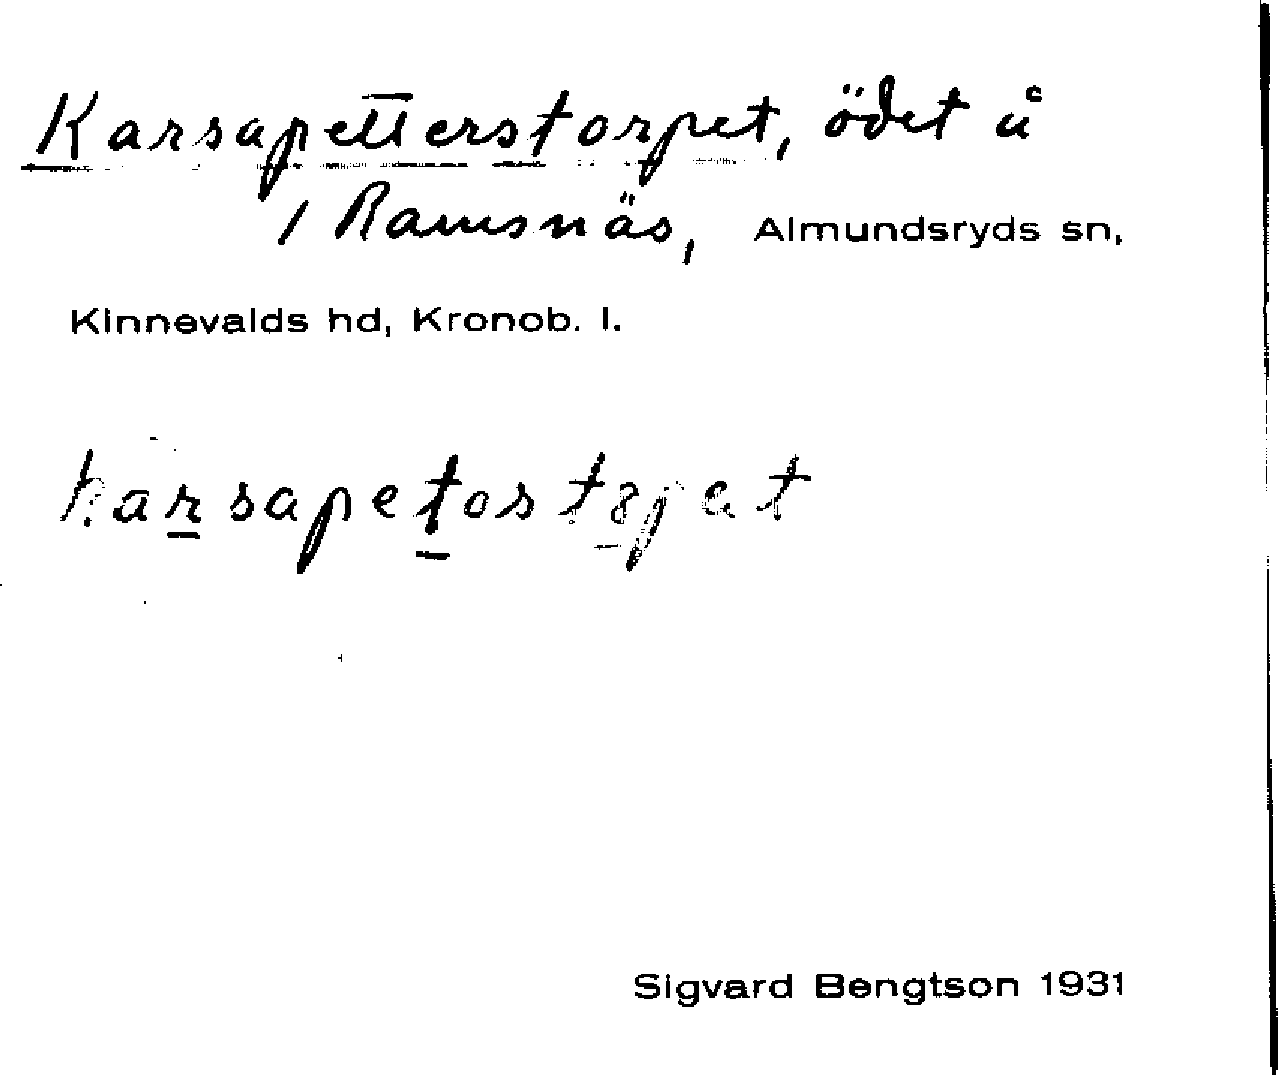 Karsapetterstorpet, ödet å
1 Ramsnäs, Almundsryds sn,
Kinnevalds hd, Kronob. l.
karsapetos tɜpat
Sigvard Bengtson 1931